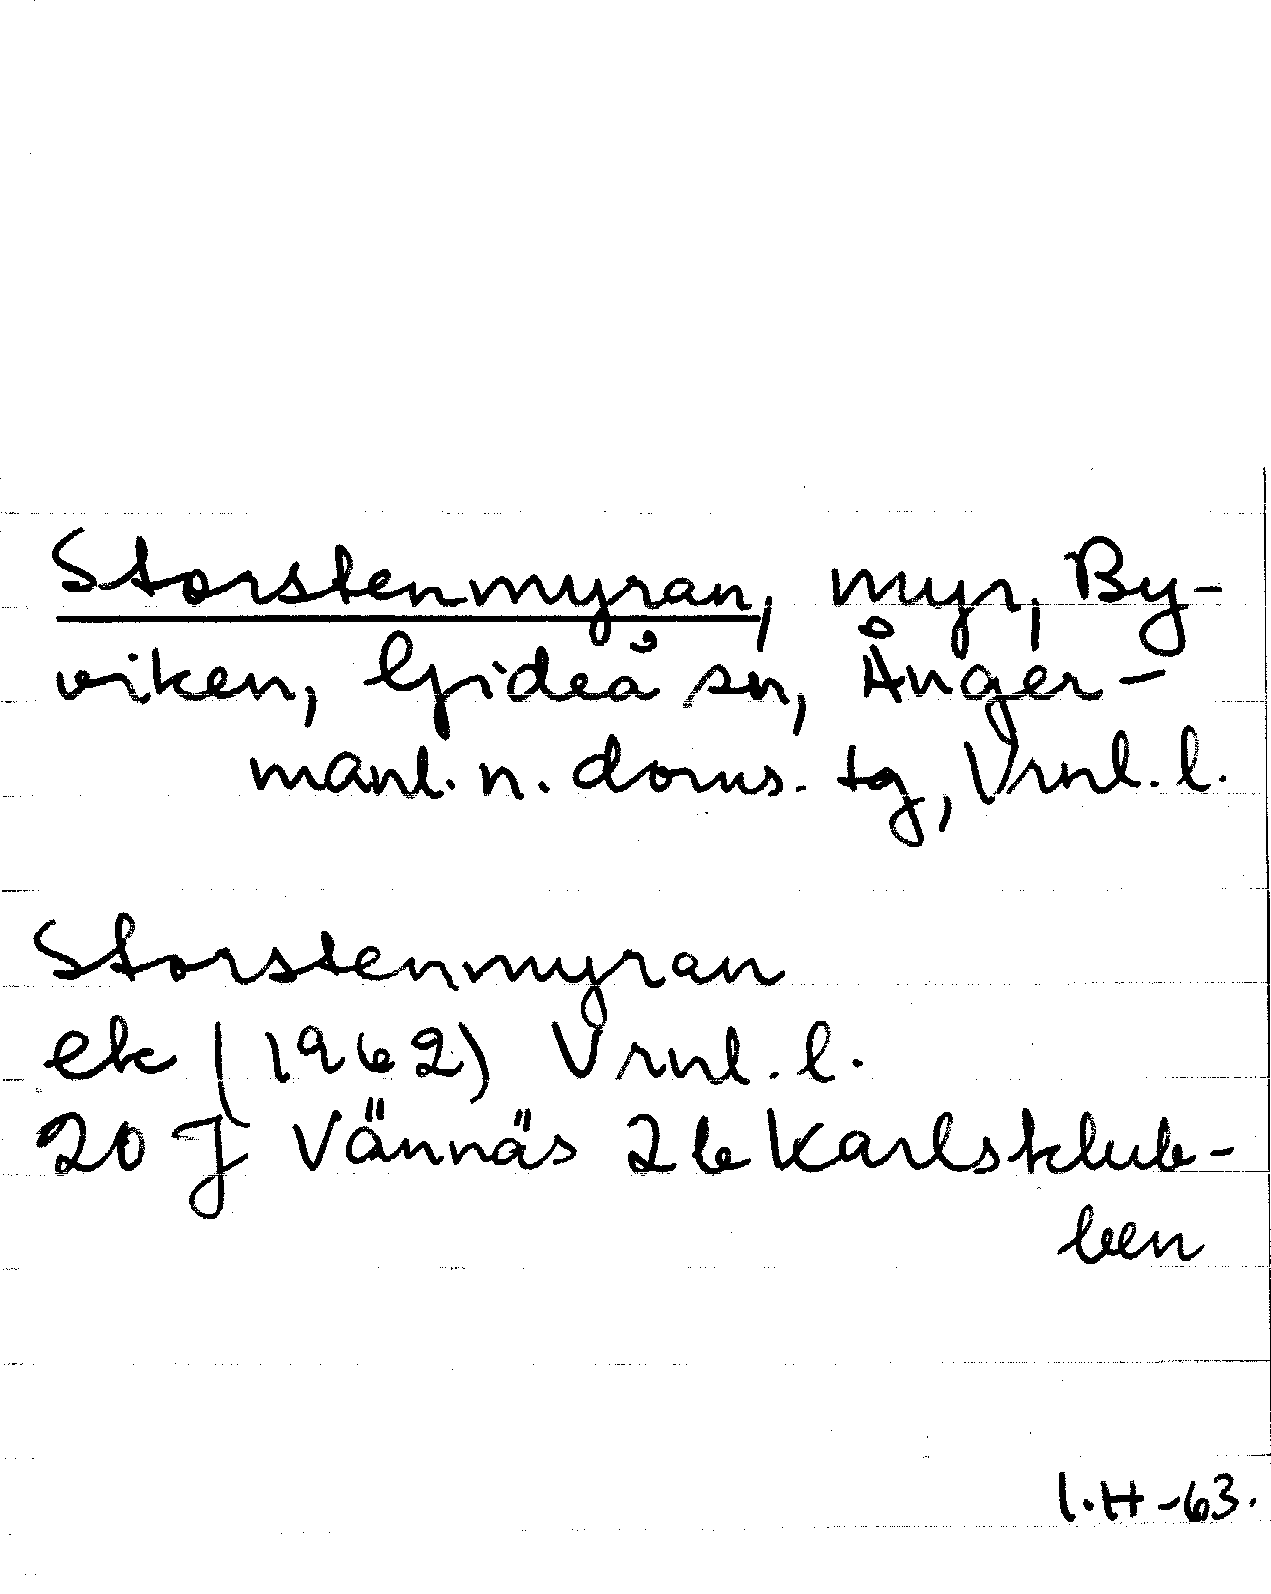 Storstenmyran, myr, By-
viken, Gideå sn, Ånger-
manl. n. doms. tg, Vrnl. l.
Storstenmyran
ek (1962) Vrnl. l.
20 J Vännäs 2 b Karlsklub-
ben
I.H -63.